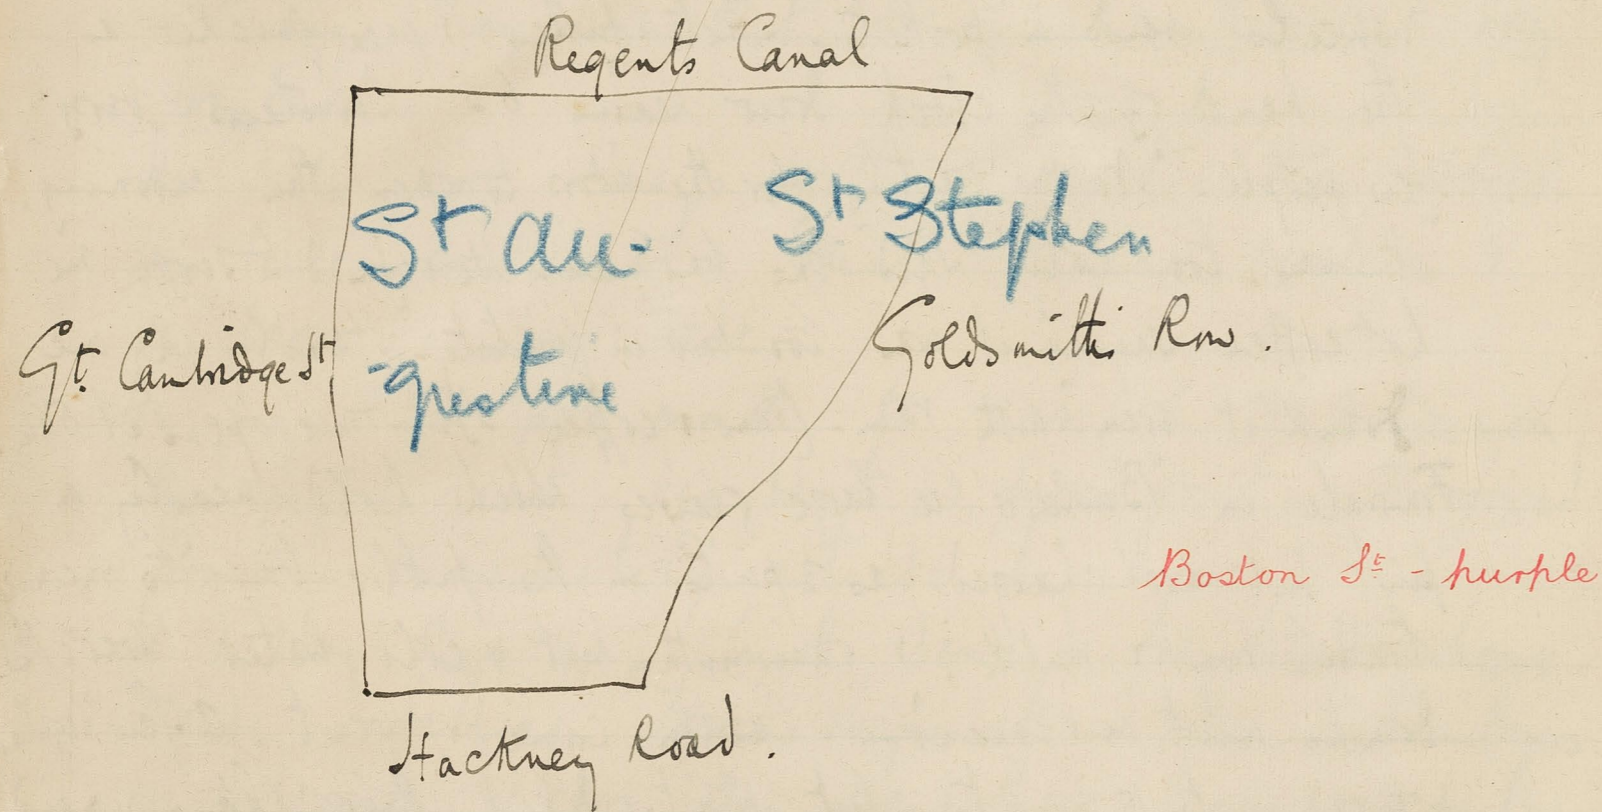 Regents Canal
St Au-
St Stephen
-gustine
Gt. Cambridge St
Goldsmiths Row.
Boston St - purple
Hackney Road.